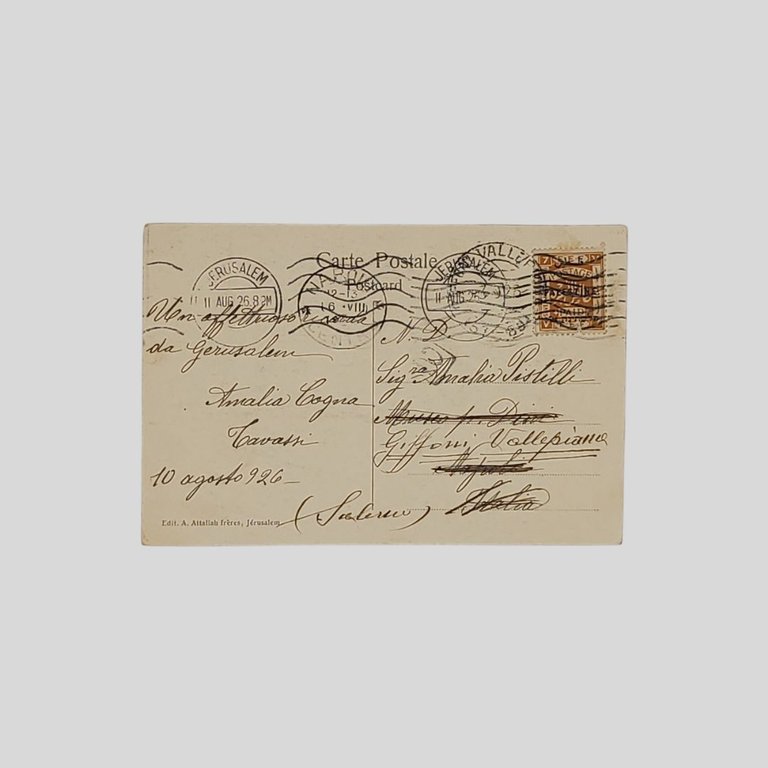 Carte Postale
Postcard
JERUSALEM
11 AUG 26. 8 PM
NAPOLI
12-13
16 · VIII
JERUSALEM
11 AUG 26
Un affettuoso ricordo
da Gerusalem
Amalia Cogna
Tavassi
10 agosto 926
N. D.
Sigra Amalia Pistilli
Giffoni Vallepiana
Napoli
Italia
(Salerno)
Edit. A. Attallah frères, Jérusalem